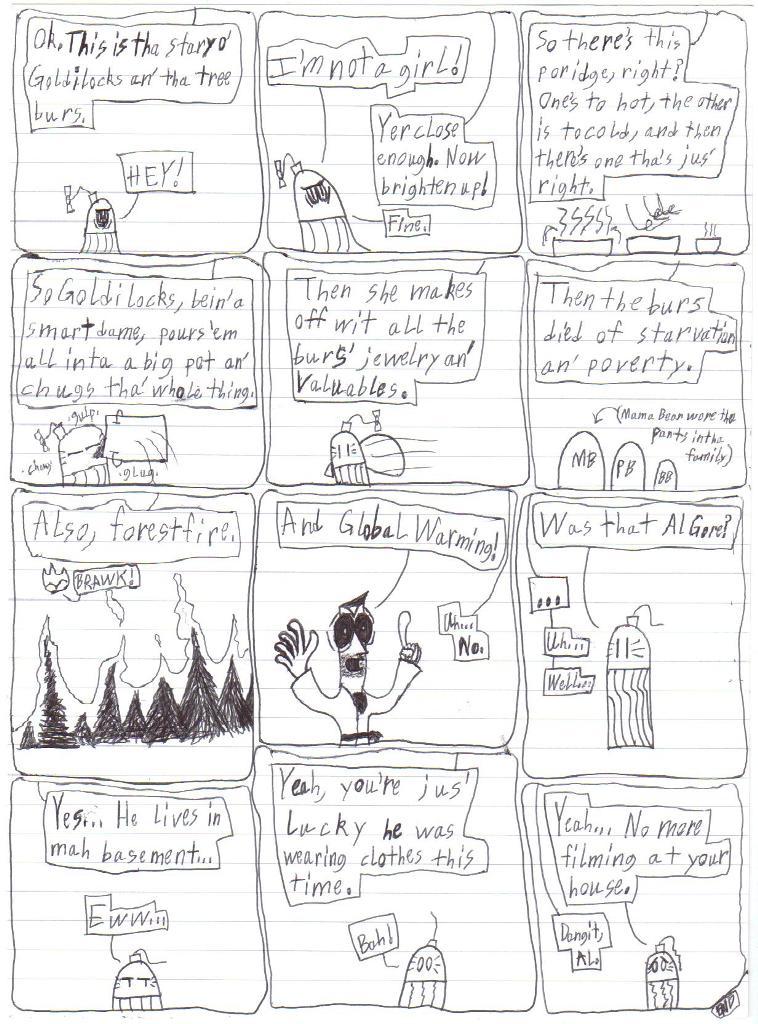 Ok. This is tha stary o'
Goldilocks an' tha tree
burs.
HEY!
I'm not a girl!
Yer close
enough. Now
brighten up!
Fine.
So there's this
poridge, right?
One's to hot, the other
is to cold, and then
there's one tha's jus'
right.
So Goldilocks, bein' a
smart dame, pours 'em
all inta a big pot an'
chugs tha' whole thing.
gulp.
.chug
.glug.
Then she makes
off wit all the
burs' jewelry an'
valuables.
Then the burs
died of starvation
an' poverty.
(Mama Bear wore the
pants in tha
family)
MB
PB
BB
Also, forest fire.
BRAWK!
And Global Warming!
Uh...
No.
Was that Al Gore?
...
Uh...
Well...
Yes... He lives in
mah basement...
Eww...
Yeah, you're jus'
lucky he was
wearing clothes this
time.
Bah!
Yeah... No more
filming at your
house.
Dangit,
Al.
END